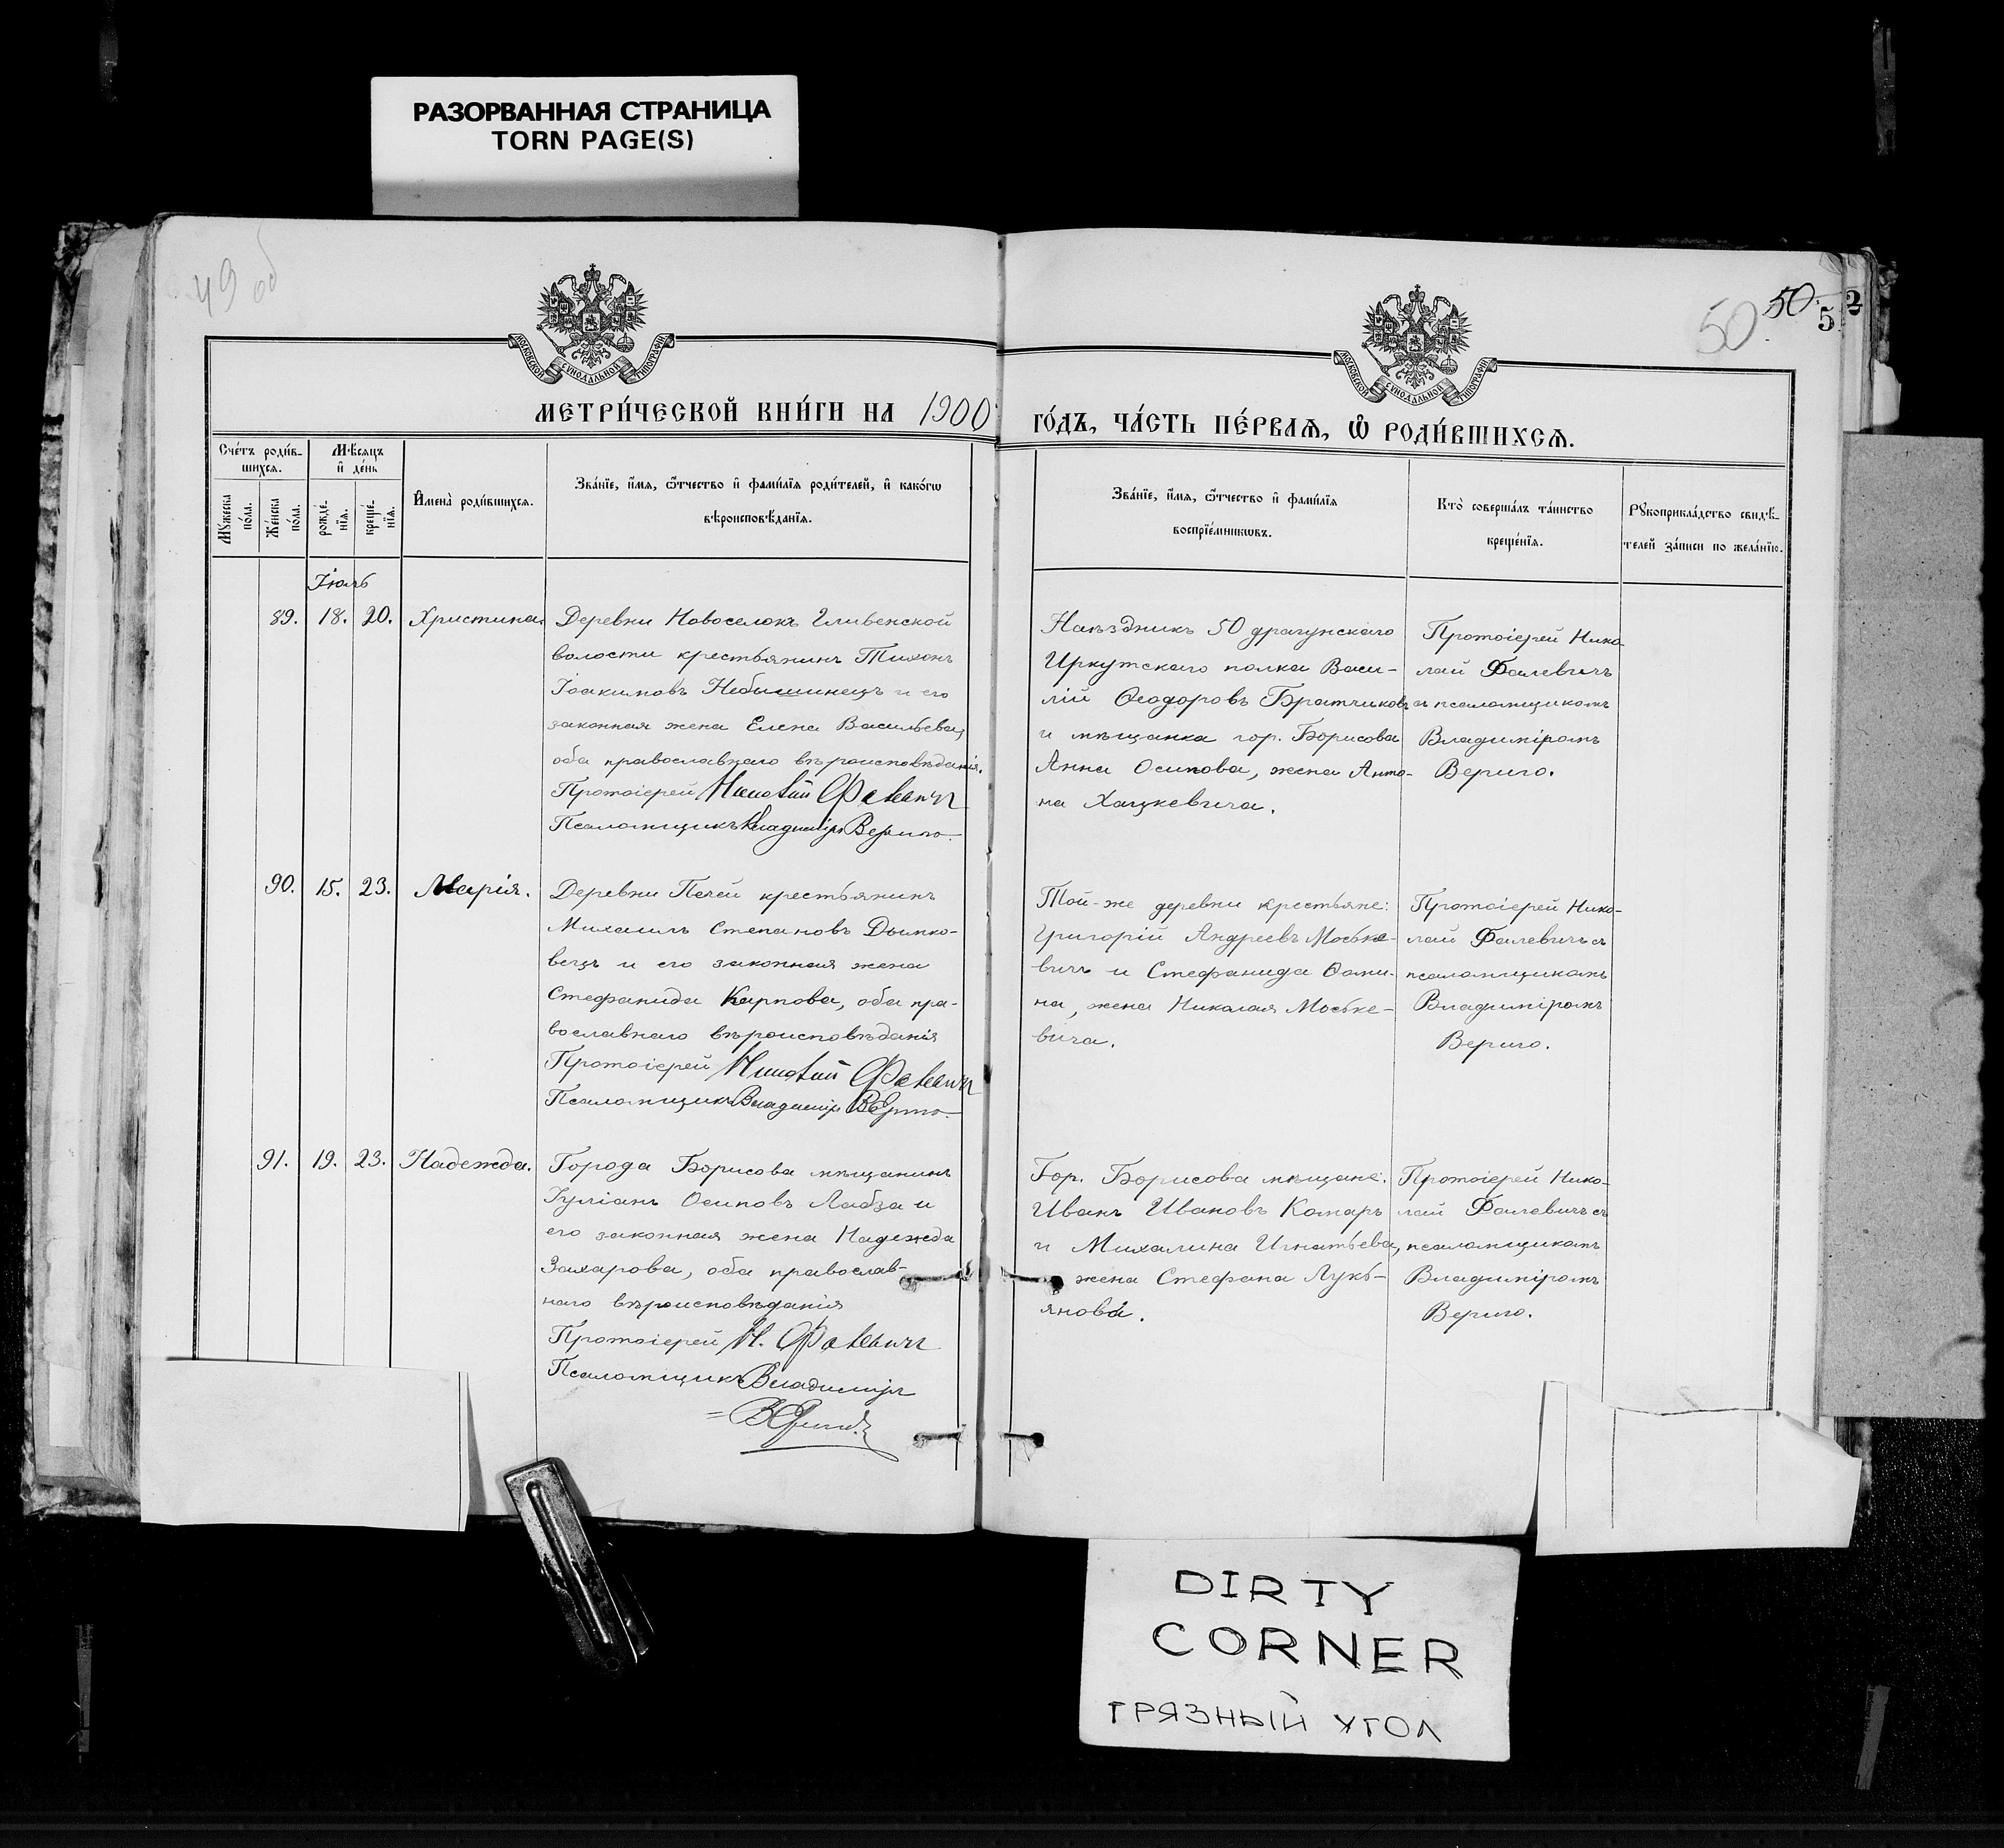 РАЗОРВАННАЯ СТРАНИЦА
TORN PAGE(S)
49 об
50 50 52
МОСКОВСКОЙ СУНОДАЛЬНОЙ ТИПОГРАФІИ
МОСКОВСКОЙ СУНОДАЛЬНОЙ ТИПОГРАФІИ
МЕТРИ́ЧЕСКОЙ КНИ́ГИ НА 1900
ГО́ДЪ, ЧА́СТЬ ПЕ́РВАЯ, Ѿ РОДИ́ВШИХСЯ.
Сче́тъ роди́в-
шихся.
Мѣсяцъ
и де́нь
Мꙋжеска
по́ла.
Же́нска
по́ла.
рожде́-
нїя.
креще́-
нїя.
Имена̀ роди́вшихся.
Зва́нїе, и́мя, ѻ́тчество и фами́лїя роди́телей, и како́гѡ
вѣроисповѣ́данїя.
Зва́нїе, и́мя, ѻ́тчество и фами́лїя
воспрїе́мникѡвъ.
Кто̀ соверша́лъ та́инство
креще́нїя.
Рꙋкоприкла́дство свидѣ́-
телей за́писи по жела́нїю.
Іюль
89. 18. 20. Христина.
Деревни Новоселокъ Гливенской
волости крестьянинъ Тихонъ
Іоакимовъ Небышинецъ и его
законная жена Елена Васильева,
оба православнаго вѣроисповѣданія.
Протоіерей Николай Фалевичъ
Псаломщикъ Владиміръ Вериго.
Наѣздникъ 50 драгунскаго
Иркутскаго полка Васи-
лій Ѳеодоровъ Братчиковъ
и мѣщанка гор. Борисова
Анна Осипова, жена Анто-
на Хацкевича.
Протоіерей Нико
лай Фалевичъ
съ псаломщикомъ
Владиміромъ
Вериго.
90. 15. 23. Марія.
Деревни Печей крестьянинъ
Михаилъ Степановъ Дымко-
вецъ и его законная жена
Стефанида Карпова, оба пра-
вославнаго вѣроисповѣданія
Протоіерей Николай Фалевичъ
Псаломщикъ Владиміръ Вериго.
Той-же деревни крестьяне:
Григорій Андреевъ Моське-
вичъ и Стефанида Ѳоми-
на, жена Николая Моське-
вича.
Протоіерей Нико-
лай Фалевичъ съ
псаломщикомъ
Владиміромъ
Вериго.
91. 19. 23. Надежда.
Города Борисова мѣщанинъ
Іуліанъ Осиповъ Лабза и
его законная жена Надежда
Захарова, оба православ-
наго вѣроисповѣданія
Протоіерей Н. Фалевичъ
Псаломщикъ Владиміръ
Вериго.
Гор. Борисова мѣщане:
Иванъ Ивановъ Комаръ
и Михалина Игнатьева,
жена Стефана Лукь-
янова.
Протоіерей Нико-
лай Фалевичъ съ
псаломщикомъ
Владиміромъ
Вериго.
DIRTY
CORNER
ГРЯЗНЫЙ УГОЛ